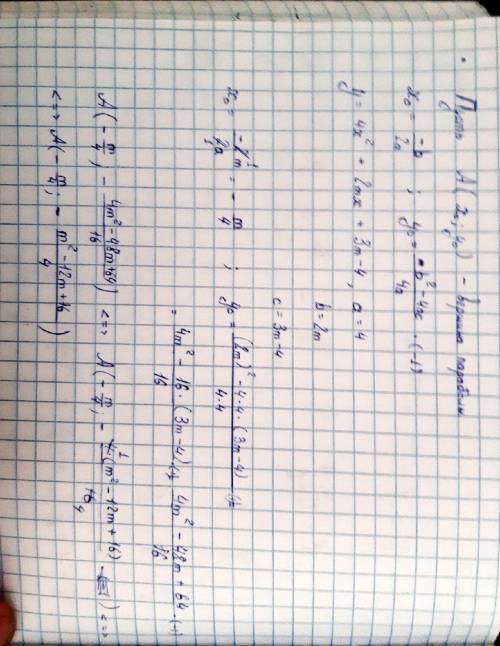 Пусть A(x₀; y₀) – вершина параболы
x₀ = -b/2a ; y₀ = (b² - 4ac)/4a · (-1)
y = 4x² + 2mx + 3m - 4, a = 4
b = 2m
c = 3m - 4
x₀ = -2m/2a = -m/4 ; y₀ = ((2m)² - 4·4·(3m - 4))/(4·4)
= (4m² - 16·(3m - 4))/16 (4m² - 48m + 64)/16 · (-1)
A(-m/4) - (4m² - 48m + 64)/16) <=> A(-m/4; - 4(m² - 12m + 16)/16) <=>
<=> A(-m/4; - (m² - 12m + 16)/4)